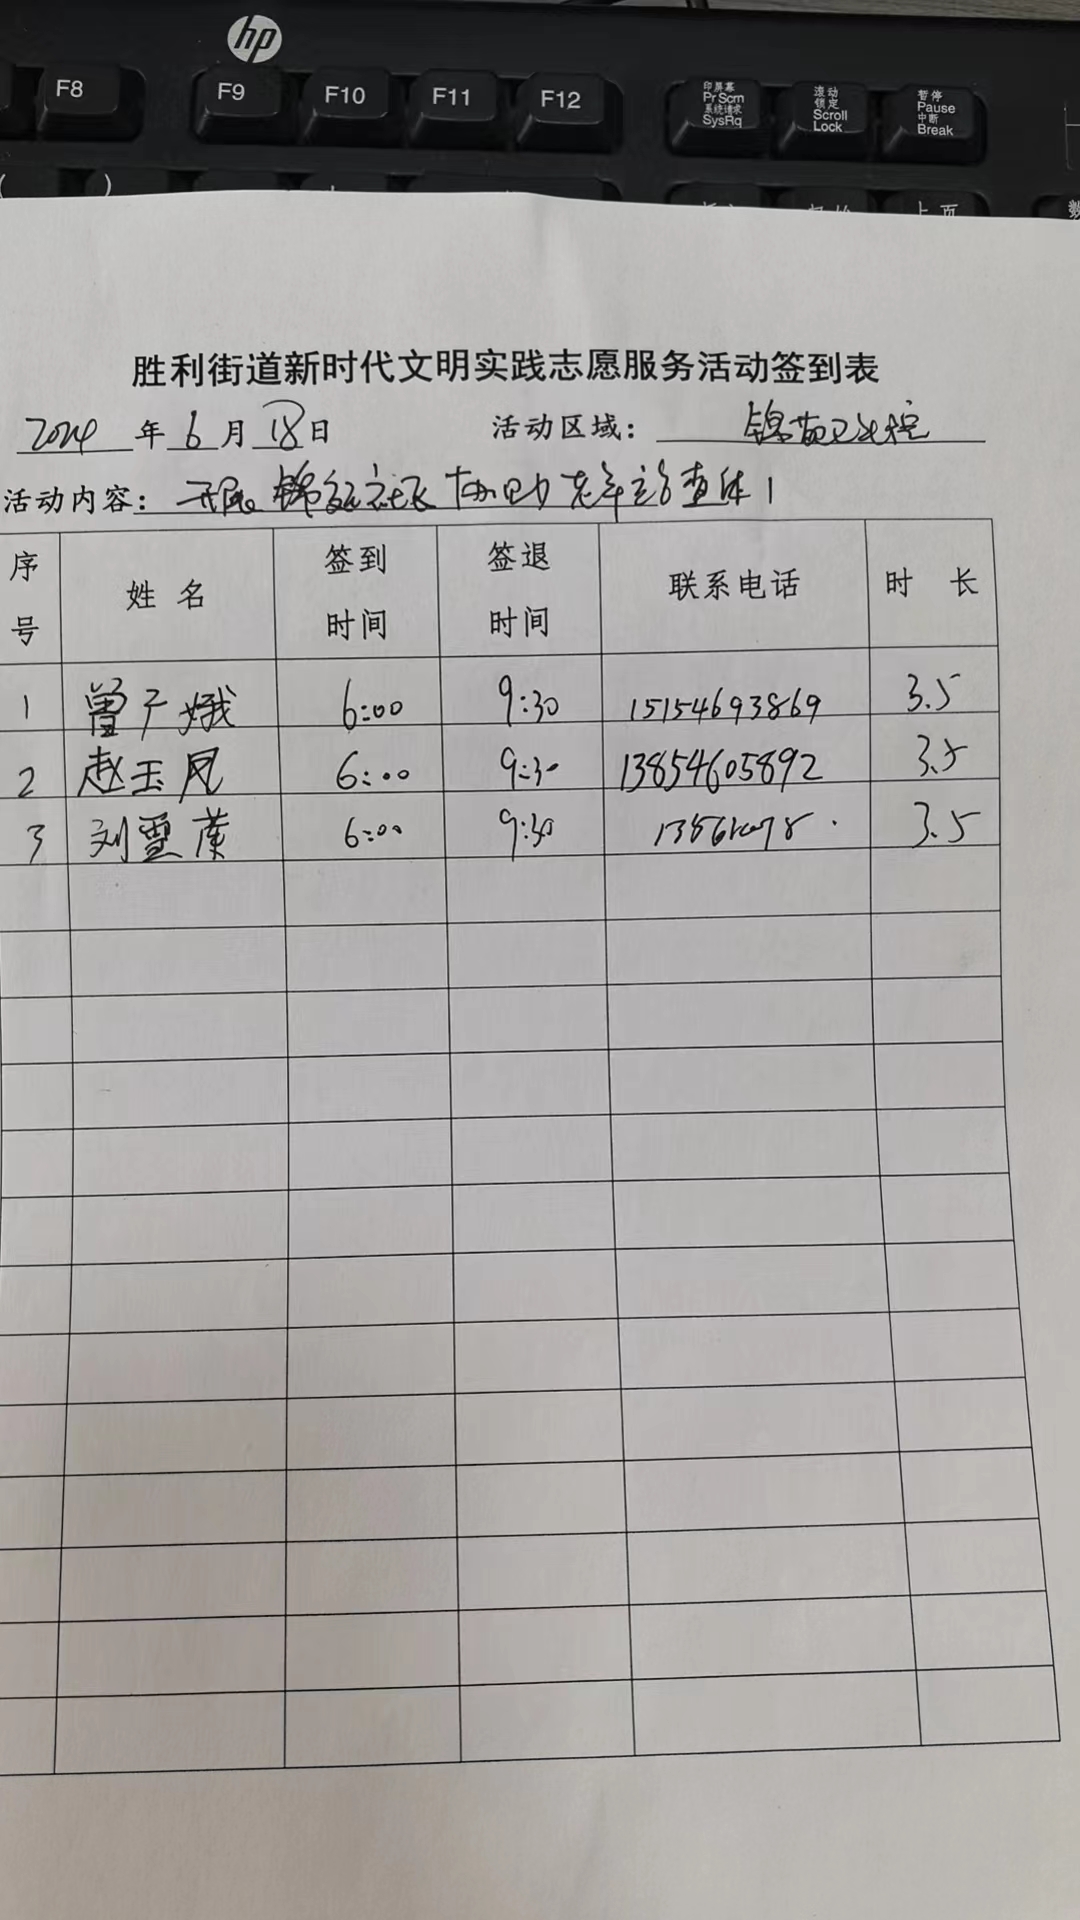 hp
F8 F9 F10 F11 F12 印屏幕 Pr Scrn 系统请求 SysRq 滚动 锁定 Scroll Lock 暂停 Pause 中断 Break
( )
上页 数
胜利街道新时代文明实践志愿服务活动签到表
2024年6月18日 活动区域：锦苑卫生院
活动内容：开展锦苑社区协助老年方查体
序号 姓名 签到时间 签退时间 联系电话 时长
1 曾广娥 6:00 9:30 15154693869 3.5
2 赵玉凤 6:00 9:30 13854605892 3.5
3 刘 6:00 9:30 3.5